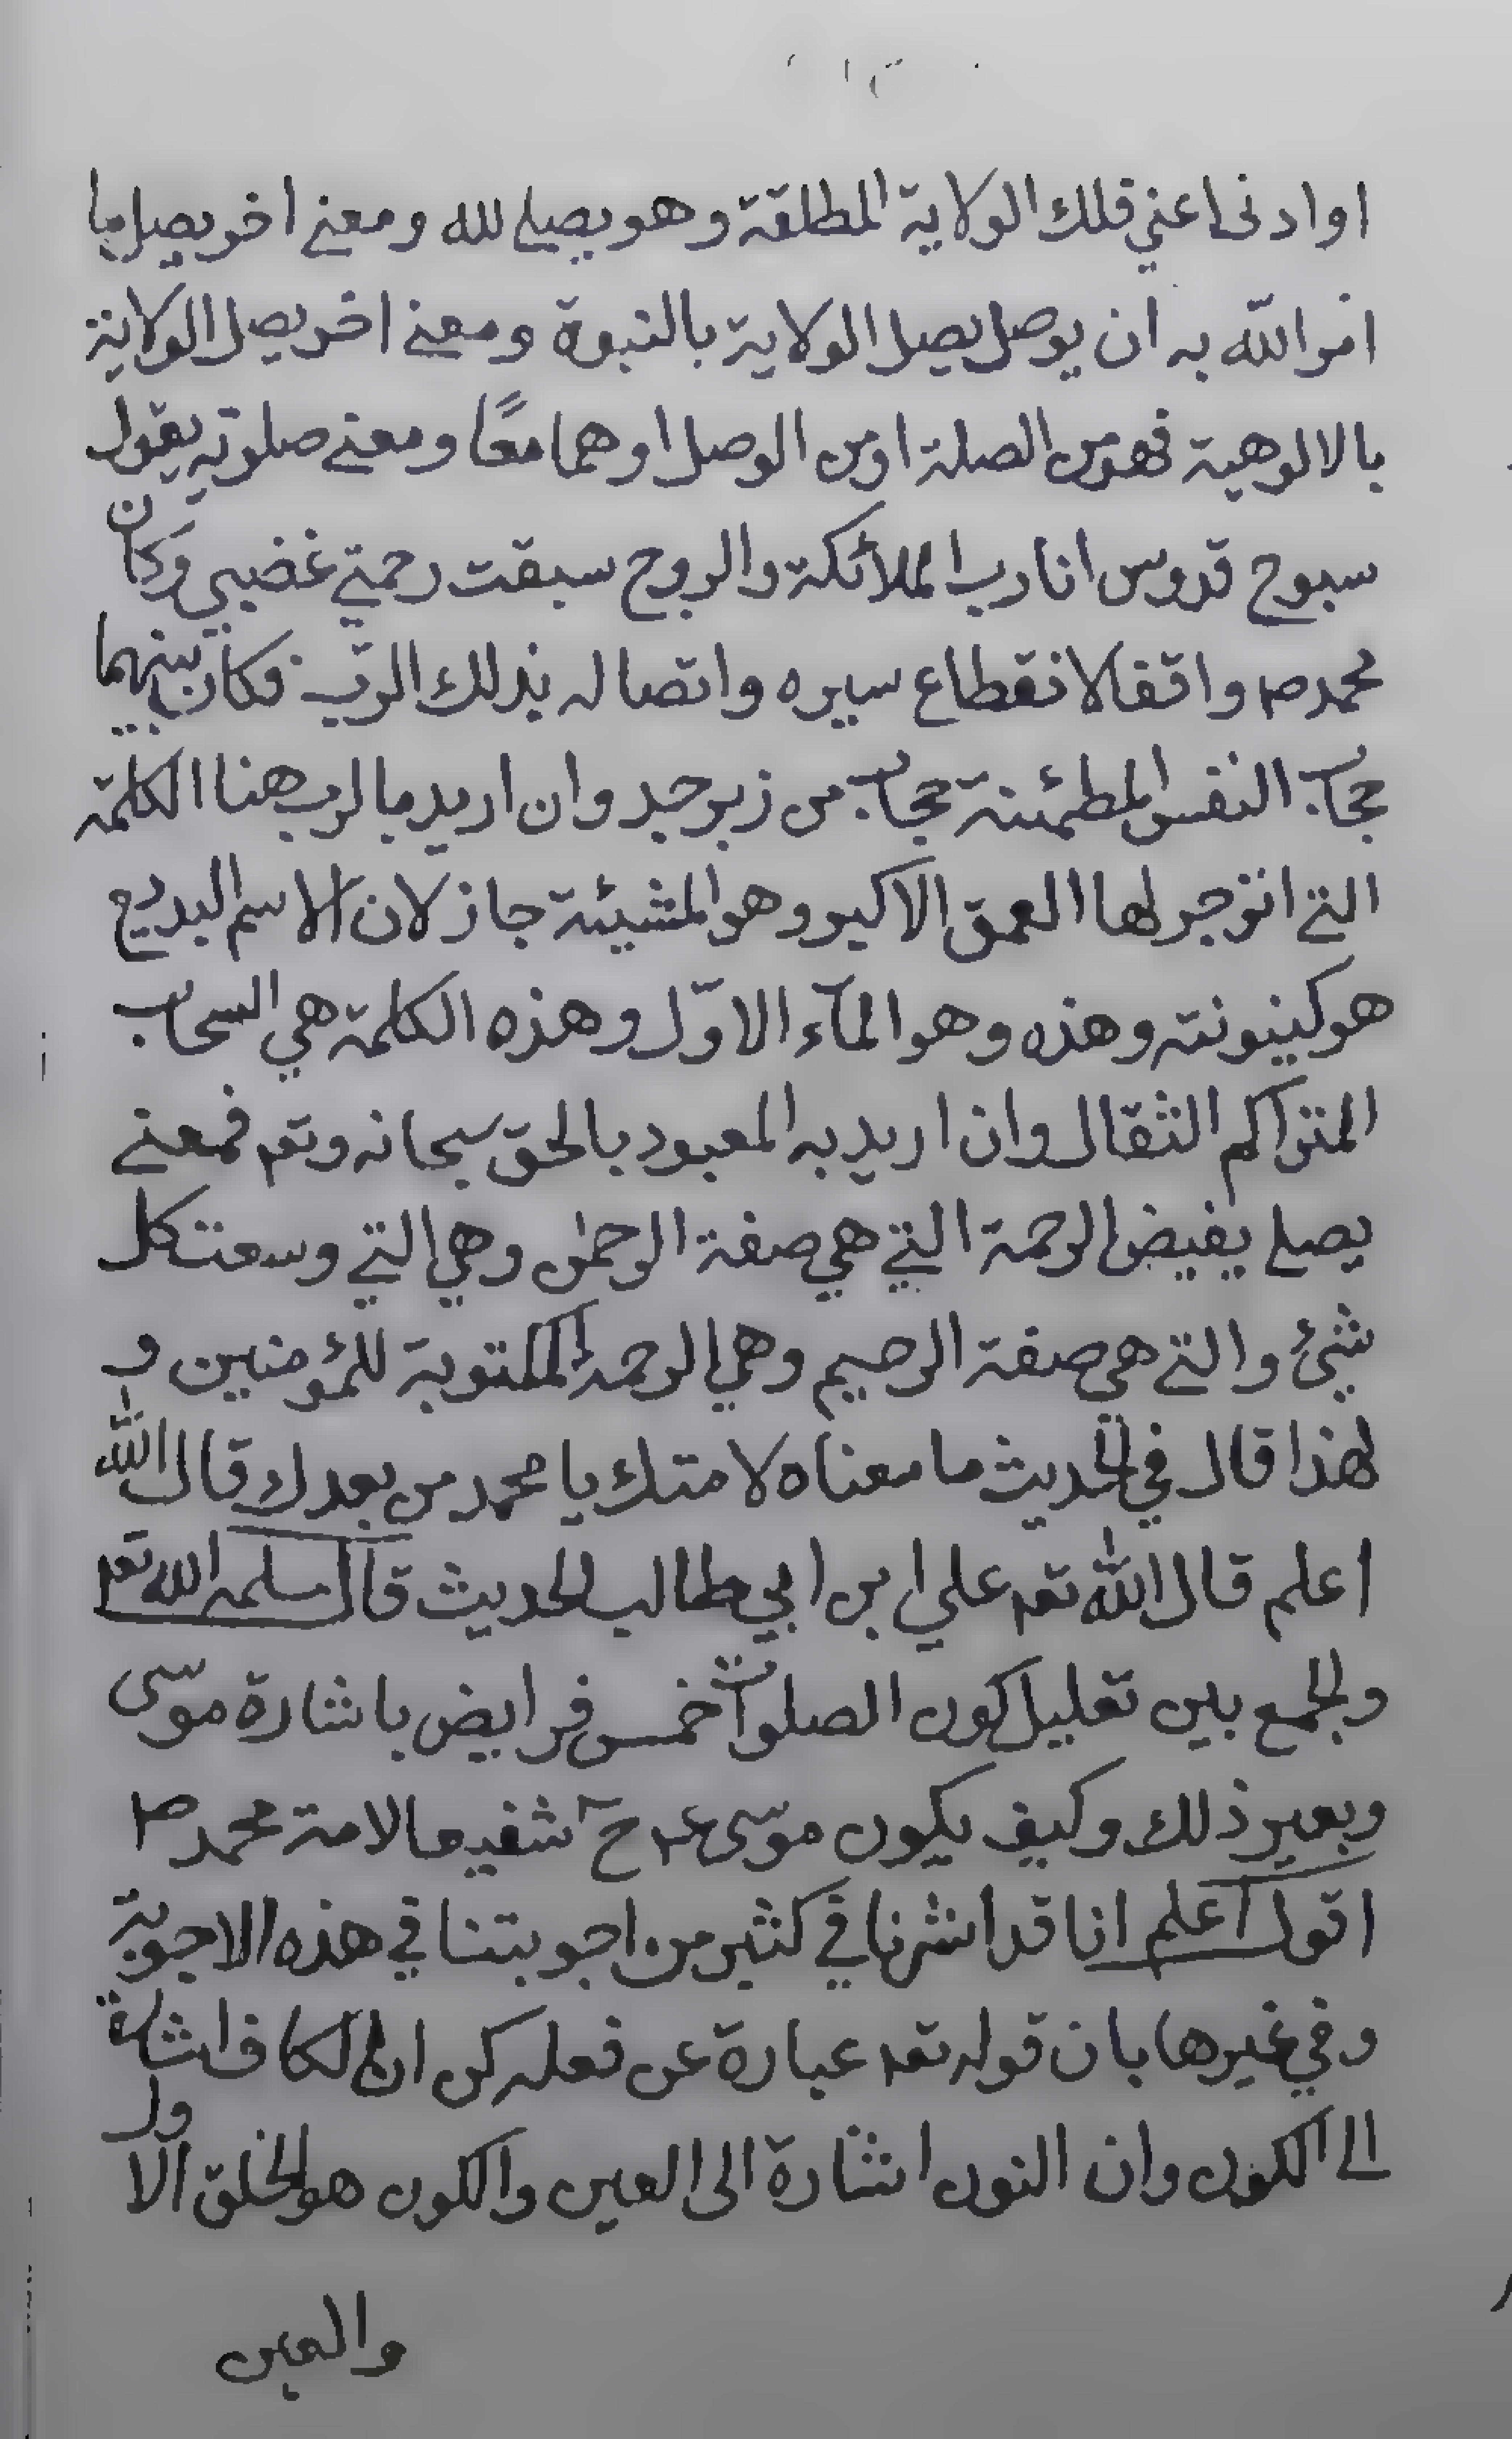 او ادنى اعني فلك الولاية المطلقة وهو يصلي لله ومعنى اخر يصل ما
امر الله به ان يوصل يصل الولاية بالنبوة ومعنى اخر يصل الولاية
بالالوهية فهو من الصلة او من الوصل او هما معًا ومعنى صلوته يقول
سبوح قدوس انا رب الملائكة والروح سبقت رحمتي غضبي وكان
محمد ص واقفا لانقطاع سيره واتصاله بذلك الرب فكان بينهما
حجاب النفس المطمئنة حجاب من زبرجد وان اريد بالرب هنا الكلمة
التي انزجر لها العمق الاكبر وهو المشيئة جاز لان الاسم البديع
هو كينونته وهذه وهو المآء الاوّل وهذه الكلمة هي السحاب
المتراكم الثقال وان اريد به المعبود بالحق سبحانه وتعه فمعنى
يصلي يفيض الرحمة التي هي صفة الرحمن وهي التي وسعت كل
شيئ والتي هي صفة الرحيم وهي الرحمة المكتوبة للمؤمنين و
لهذا قال في الحديث ما معناه لامتك يا محمد من بعدك قال الله
اعلم قال الله تعه علي ابن ابي طالب الحديث قال سلمه الله تعه
والجمع بين تعليل كون الصلوات خمس فرايض باشارة موسى
وبعير ذلك وكيف يكون موسى ع ح شفيعا لامة محمد ص
اقول اعلم انا قد اشرنا في كثير من اجوبتنا في هذه الاجوبة
وفي غيرها بان قوله تعه عبارة عن فعله كن ان الكاف اشارة
الى الكون وان النون اشارة الى العين والكون هو الخلق الاول
والعين